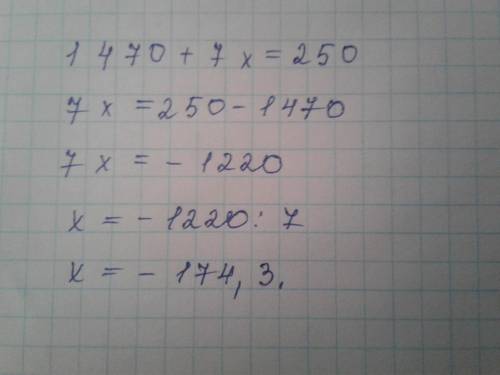 1 470 + 7 x = 250
7 x = 250 - 1470
7 x = - 1220
x = - 1220 : 7
x = - 174, 3.